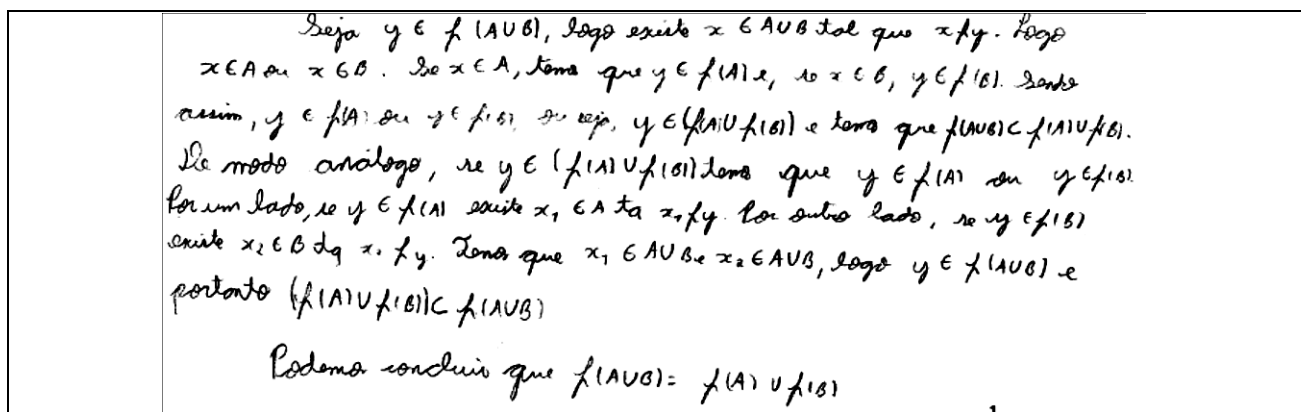 Seja y ∈ f(A∪B), logo existe x ∈ A∪B tal que x f y. Logo
x ∈ A ou x ∈ B. Se x ∈ A, temo que y ∈ f(A) e, se x ∈ B, y ∈ f(B). Sendo
assim, y ∈ f(A) ou y ∈ f(B), ou seja, y ∈ (f(A)∪f(B)) e temo que f(A∪B) ⊂ f(A)∪f(B).
De modo análogo, se y ∈ (f(A)∪f(B)) temo que y ∈ f(A) ou y ∈ f(B).
Por um lado, se y ∈ f(A) existe x₁ ∈ A tq x₁ f y. Por outro lado, se y ∈ f(B)
existe x₂ ∈ B tq x₂ f y. Temo que x₁ ∈ A∪B e x₂ ∈ A∪B, logo y ∈ f(A∪B) e
portanto (f(A)∪f(B)) ⊂ f(A∪B)
Podemo concluir que f(A∪B) = f(A) ∪ f(B)